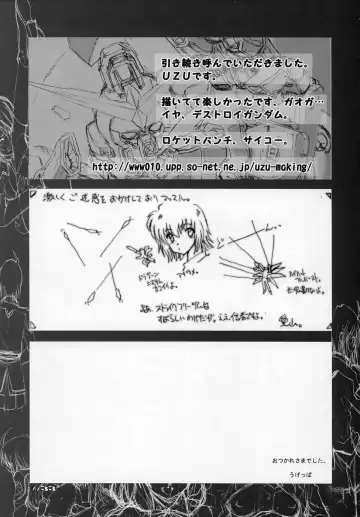 引き続き呼んでいただきました。
UZUです。
描いてて楽しかったです、ガオガ…
イヤ、デストロイガンダム。
ロケットパンチ、サイコー。
http://www010.upp.so-net.ne.jp/uzu-making/
激しくご迷惑をおかけしておりマッスル。
ドラグーン
ストライクフリーダムは
すばらしいわけだが。ええ
愛山。
おつかれさまでした。
うげっぱ